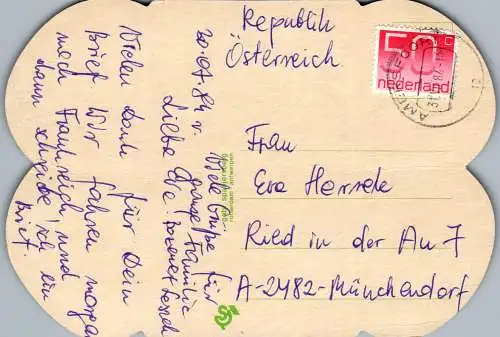 Republik
Österreich
50 c
nederland
AMERSFOORT
20.07.84
Liebe Eve
Vielen Dank für Dein
Brief. Wir fahren morgen
nach Frankreich und
dann schreibe ich ein
Brief.
Viele Grüße für
Familie
Frau
Eva
Ried in der Au 7
A-2482-Münchendorf